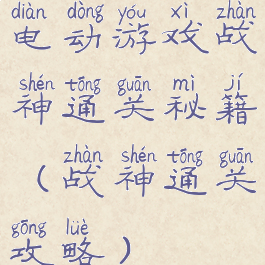 diàn dòng yóu xì zhàn
电动游戏战
shén tōng guān mì jí
神通关秘籍
zhàn shén tōng guān
(战神通关
gōng lüè
攻略)